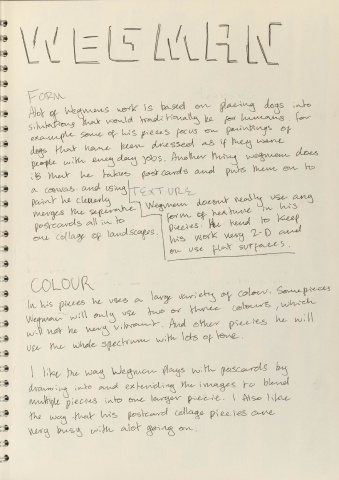 WEGMAN
FORM
Alot of Wegmens work is based on placing dogs into
situtations that would traditionally be for humans for
example some of his pieces focus on paintings of
dogs that have been dressed as if they were
people with everyday jobs. Another thing wegman does
is that he takes postcards and puts them on to
a canvas and using
paint he cleverly
merges the seperate
postcards all in to
one collage of landscapes.
TEXTURE
Wegman doesnt really use any
form of texture in his
piecies. He tend to keep
his work very 2-D and
on use flat surfaces.
COLOUR
In his pieces he uses a large variety of colour. Some pieces
Wegman will only use two or three colours, which
will not be very vibrant. And other piecies he will
use the whole spectrum with lots of tone.
I like the way Wegman plays with postcards by
drawing into and extending the images to blend
multiple piecies into one larger piecie. I Also like
the way that his postcard collage piecies are
very busy with alot going on.